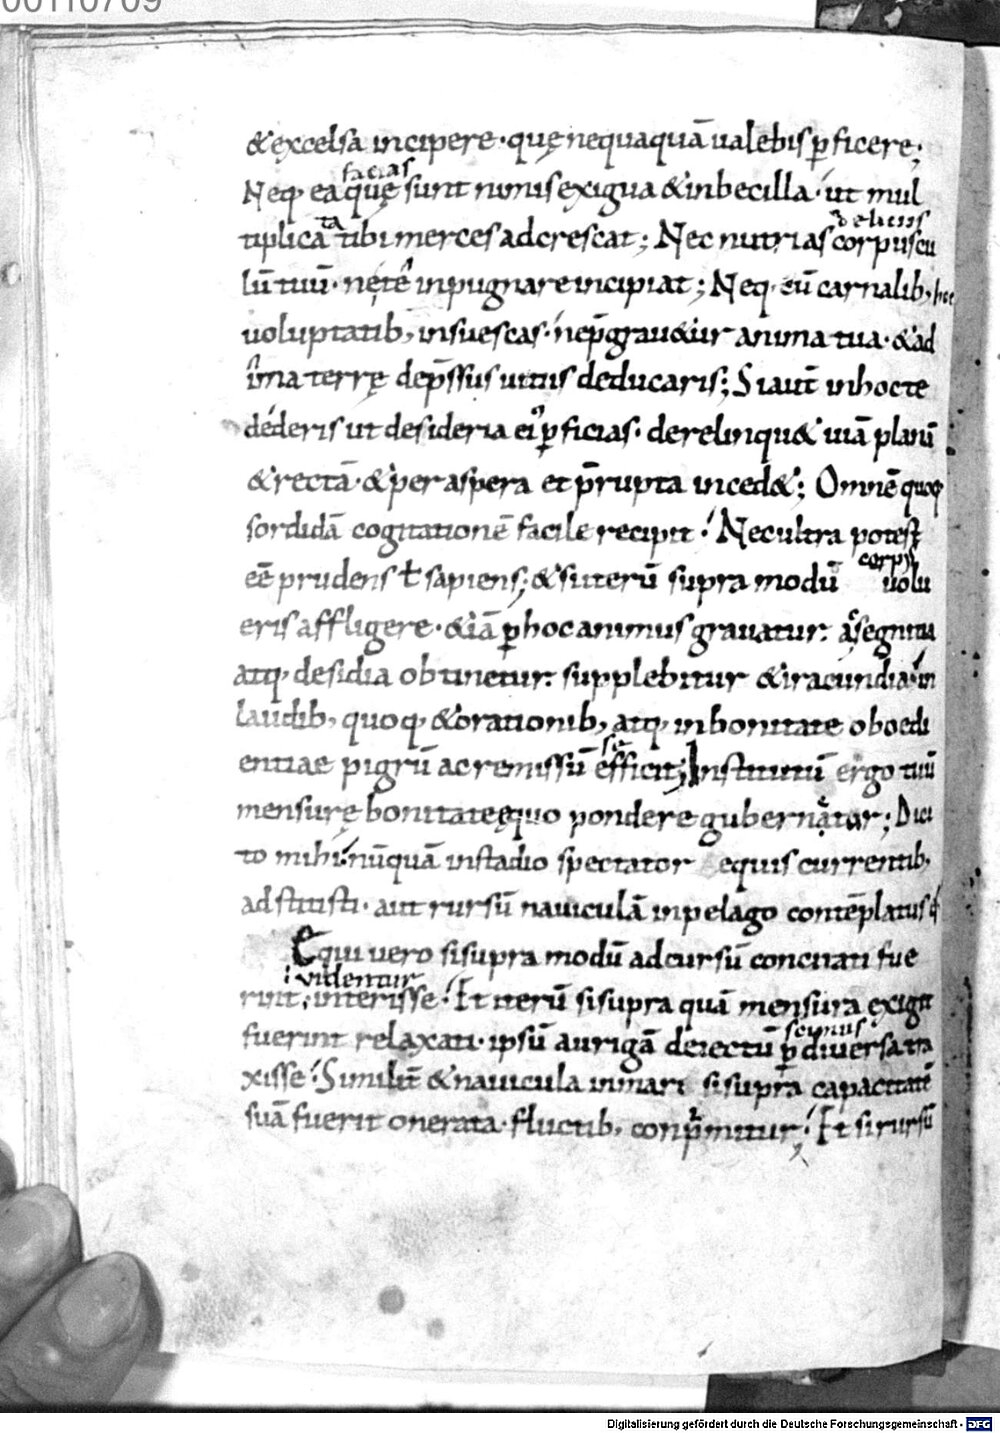 00110709
&excelsa incipere · quę nequaquā ualebis ꝑficere ;
facias
Neq· ea quę sunt nimis exigua & inbecilla · ut mul
ta deliciis
tiplicā tibi merces adcrescat ; Nec nutrias corpuscu
lū tuū · ne tē inpugnare incipiat ; Neq· eū carnalib,
uoluptatib, insuescas · ne p̄grau&ur anima tua · & ad
ima terrę dep̄ssus uitiis deducaris ; Si aut̄ in hoc te
déderis ut desideria ei' ꝑficias · derelinqu& uiā planā
& rectā · & per aspera et p̄rupta inced& ; Omnē quoq·
sordidā cogitationē facile recipit · Nec ultra potest
corpus
eē prudens ł sapiens ; & si iterū supra modū uolu
eris affligere · & iā ꝑ hoc animus grauatur · a segnitia
atq· desidia obtinetur · supplebitur & iracundia · in
laudib, quoq· & orationib, atq· in bonitate oboedi
entiae pigrū ac remissū efficit ; Institutū ergo tuū
mensurę bonitate ęquo pondere gubernatur ; Dici
to mihi · nūquā in stadio spectator equis currentib,
adstitisti · aut rursū nauiculā in pelago contēplatus
Equi uero si supra modū ad cursū concitati fue
videntur
rint , interisse · Et iterū si supra quā mensura exigit
scimus
fuerint relaxati · ipsū aurigā deiectū ꝑ diuersa tra
xisse · Similit̄ & nauicula in mari si supra capacitatē
suā fuerit onerata · fluctib, conp̄mitur · Et si rursū
Digitalisierung gefördert durch die Deutsche Forschungsgemeinschaft - DFG